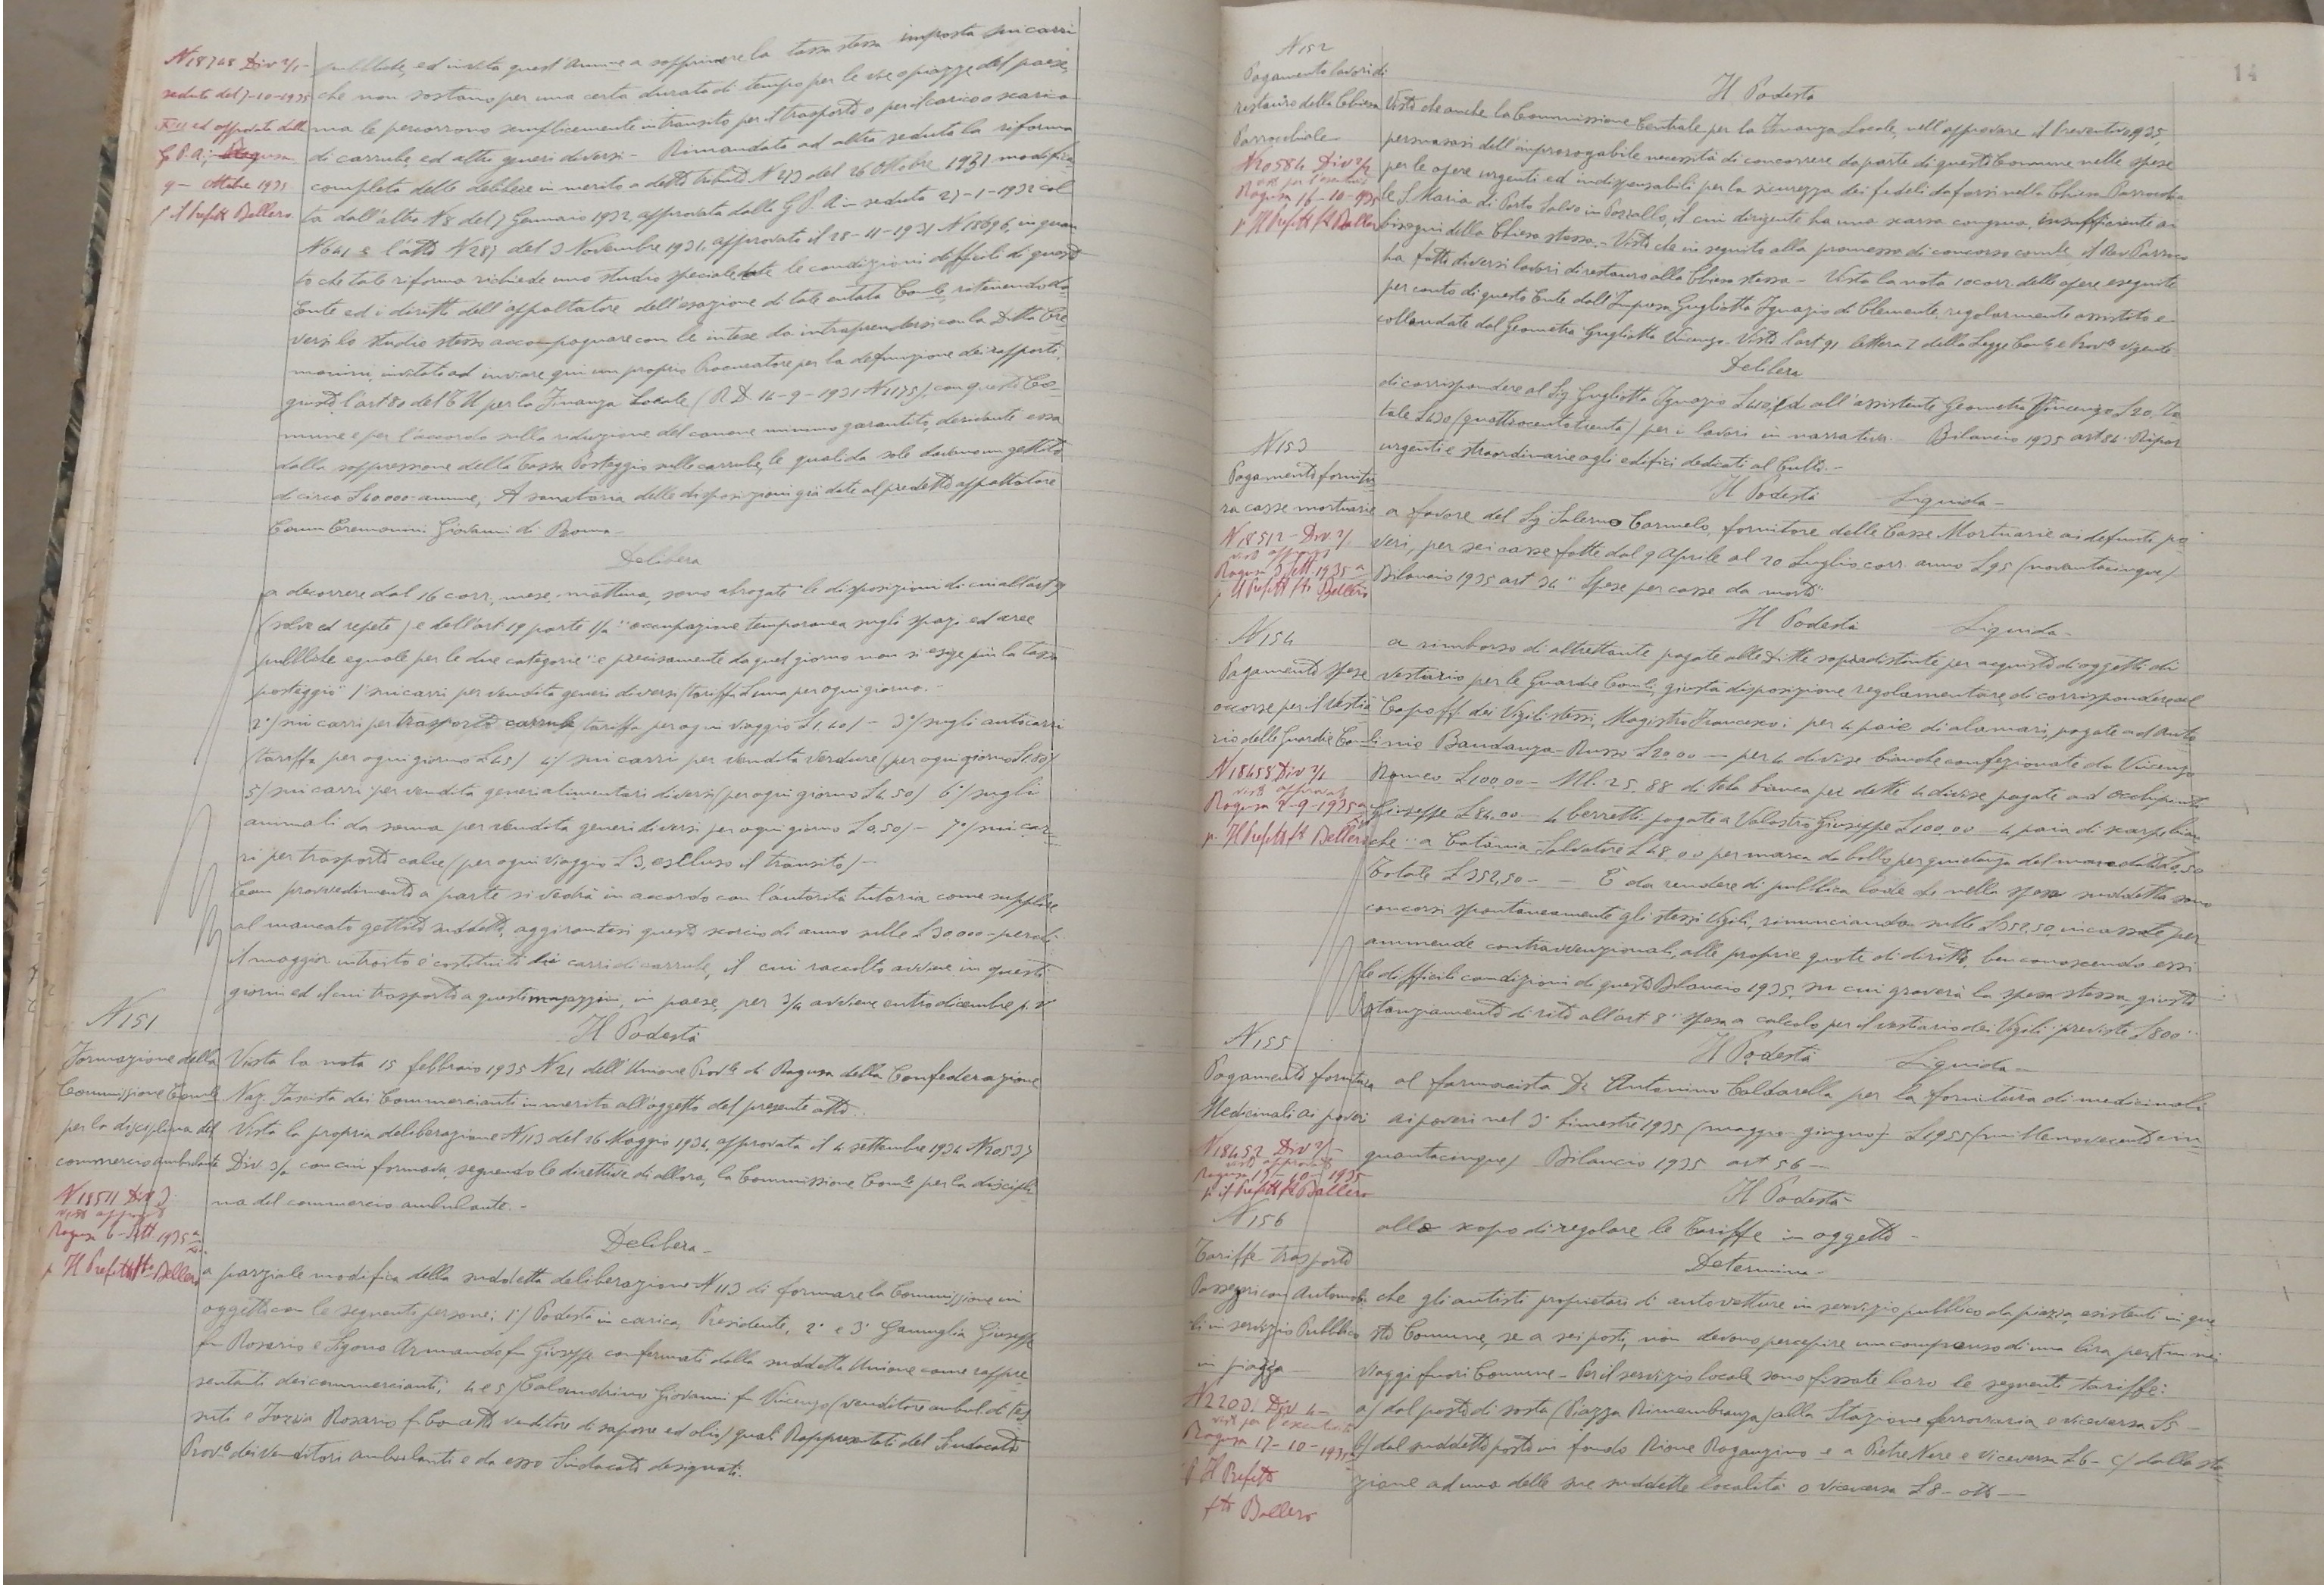 N 18748 Div 2/1 -
seduta del 7-10-1935
G.P.A. Ragusa
9 - Ottobre 1935
p. Il Prefetto Ballero
pubbliche, ed invita quest'Amm.ne a sopprimere la tassa stessa imposta sui carri
che non sostano per una certa durata di tempo per le vie e piazze del paese,
ma le percorrono semplicemente in transito per il trasporto o per il carico o scarico
di carrube ed altri generi diversi - Rimandata ad altra seduta la riforma
completa delle delibere in merito a detto tributo N 273 del 26 Ottobre 1931 modifica
ta dall'altra N 8 del 7 Gennaio 1932, approvata dalla G.P.A. in seduta 27-1-1932 col
N 641 e l'atto N 287 del 3 Novembre 1931, approvato il 28-11-1931 N 18696, in quan
to che tale riforma richiede uno studio speciale date le condizioni difficili di questo
Ente ed i diritti dell'appaltatore dell'esazione di tale entrata Com.le, ritenendo do
versi lo studio stesso accompagnare con le intese da intraprendersi con la Ditta Cre
monini, invitata ad inviare qui un proprio Procuratore per la definizione dei rapporti,
giusto l'art 80 del T.U. per la Finanza Locale (R.D. 14-9-1931 N 1175), con questo Co=
mune e per l'accordo sulla riduzione del canone minimo garantito, derivante essa
dalla soppressione della Tassa Posteggio sulle carrube, le quali da sole davano un gettito
di circa £ 40.000 annue, A sanatoria delle disposizioni già date al predetto appaltatore
Comm Cremonini Giovanni di Roma -
Delibera
a decorrere dal 16 corr. mese, mattina, sono abrogate le disposizioni di cui all'art 9
(solve et repete) e dell'art 19 parte 1/a "occupazione temporanea sugli spazi ed aree
pubbliche eguale per le due categorie" e precisamente da quel giorno non si esige più la tassa
posteggio" 1° sui carri per vendita generi diversi (tariffa L una per ogni giorno. -
2°/ sui carri per trasporto carrube tariffa per ogni viaggio £ 1,40/ - 3°/ sugli autocarri
(tariffa per ogni giorno £ 45) 4/ sui carri per vendita verdure (per ogni giorno £ 1,80)
5/ sui carri per vendita generi alimentari diversi (per ogni giorno £ 4.50) 6°/ sugli
animali da soma per vendita generi diversi per ogni giorno £ 0,50/ - 7°/ sui car-
ri per trasporto calce (per ogni viaggio £ 3, escluso il transito) -
Con provvedimento a parte si vedrà in accordo con l'autorità tutoria come supplire
al mancato gettito suddetto, aggirantesi questo scorcio di anno sulle £ 30.000 - perchè
il maggior introito è costituito dai carri di carrube, il cui raccolto avviene in questi
giorni ed il cui trasporto a questi magazzini, in paese, per 3/4 avviene entro dicembre p.v.
N 151
Formazione della
Commissione Com.le
per la disciplina del
commercio ambulante
N 18511 Div 3.
visto approvato
Ragusa 6 - Sett. 1935
p Il Prefetto fto Ballero
Il Podestà
Vista la nota 15 febbraio 1935 N 21 dell'Unione Prov.le di Ragusa della Confederazione
Naz. Fascista dei Commercianti in merito all'oggetto del presente atto.
Vista la propria deliberazione N 113 del 26 Maggio 1934, approvata il 4 settembre 1934 N 20537
Div 3/a con cui formava, seguendo le direttive di allora, la Commissione Com.le per la discipli-
na del commercio ambulante. -
Delibera -
a parziale modifica della suddetta deliberazione N 113 di formare la Commissione in
oggetto con le seguenti persone: 1°/ Podestà in carica, Presidente, 2° e 3° Gamuglia Giuseppe
fu Rosario e Sigona Armando fu Giuseppe confermati dalla suddetta Unione come rappre
sentanti dei commercianti; 4 e 5/ Calandrino Giovanni fu Vincenzo (venditore ambul. di tes
suti e Rosario fu Concetto venditore di sapone ed olio) quali Rappresentanti del Sindacato
Prov.le dei venditori ambulanti e da esso Sindacato designati.
14
N 152
Pagamento lavori di
restauro della Chiesa
Parrocchiale
N 20584 Div 2/2
Ragusa 16-10-935
p Il Prefetto fto Ballero
Il Podestà
Visto che anche la Commissione Centrale per la Finanza Locale, nell'approvare il Preventivo 1935,
persuasasi dell'improrogabile necessità di concorrere da parte di questo Comune nelle spese
per le opere urgenti ed indispensabili per la sicurezza dei fedeli da farsi nella Chiesa Parrocchia
le S. Maria di Porto Salvo in Pozzallo, il cui dirigente ha una scarsa congrua, insufficiente ai
bisogni della Chiesa stessa. - Visto che in seguito alla promessa di concorso com.le, il Rev Parroco
ha fatto diversi lavori di restauro alla Chiesa stessa - Vista la nota 10 corr. delle opere eseguite
per conto di questo Ente dall'Impresa Gugliotta Ignazio di Clemente, regolarmente assistito e
collaudate dal Geometra Gugliotta Vincenzo - Visto l'art 91 lettera I della Legge Com.le e Prov.le vigente
Delibera
di corrispondere al Sig Gugliotta Ignazio £ 410, ed all'assistente Geometra Vincenzo £ 20, To
tale £ 430 (quattrocentotrenta) per i lavori in narrativa. Bilancio 1935 art 84 Ripar
urgenti e straordinarie agli edifici dedicati al Culto. -
N 153
Pagamento fornitu
ra casse mortuarie
N 18512 - Div. 2/
Ragusa 5 Sett. 1935
p Il Prefetto fto Ballero
Il Podestà Liquida -
a favore del Sig Salerno Carmelo, fornitore delle Casse Mortuarie ai defunti po-
veri, per sei casse fatte dal 9 Aprile al 20 Luglio corr. anno £ 95 (novantacinque)
Bilancio 1935 art 34 "Spese per casse da morto"
N 154
Pagamento spese
occorse per il vestia
rio delle Guardie Com.li
N 18458 Div 2/1
visto approvato
Ragusa 2-9-1935
p. Il Prefetto fto Ballero
Il Podestà Liquida -
a rimborso di altrettante pagate alle Ditte sopradistinte per acquisto di oggetti di
vestiario per le Guardie Com.li, giusta disposizione regolamentare, di corrispondere al
Capo ff. dei Vigili stessi, Magistro Francesco: per 4 paie di alamari, pagate ad Anto
nio Bandanza Russo £ 20.00 - per 4 divise bianche confezionate da Vincenzo
Romeo £ 100,00 - Ml. 25,88 di tela bianca per dette 4 divise pagate ad Occhipinti
Giuseppe £ 84.00 - 4 berretti pagate a Valastro Giuseppe £ 100.00 4 paia di scarpe bian
che a Catania Salvatore £ 48,00 per marca da bollo per quietanza del mandato £ 0,50
Totale £ 352,50 - - È da rendere di pubblica lode che nella spesa suddetta sono
concorsi spontaneamente gli stessi Vigili, rinunciando sulle £ 352,50, incassate per
ammende contravvenzionali, alle proprie quote di diritto, ben conoscendo essi
le difficili condizioni di questo Bilancio 1935, su cui graverà la spesa stessa, giusto
stanziamento di rito all'art 8 "spesa a calcolo per il vestiario dei Vigili" previste £ 800"
N 155
Pagamento fornitura
Medicinali ai poveri
N 18452 Div 2/
visto approvato
Ragusa 15-10-1935
p. il Prefetto fto Ballero
Il Podestà Liquida -
al farmacista Dr Antonino Caldarella per la fornitura di medicinali
ai poveri nel 3° bimestre 1935 (maggio - giugno) - £ 1955 (millenovecentocin
quantacinque) Bilancio 1935 art 56 -
N 156
Tariffe trasporto
Passeggeri con Automobi
li in servizio Pubblico
in piazza
N 2200. Div 4 -
Ragusa 17-10-1935
p Il Prefetto
fto Ballero
Il Podestà
allo scopo di regolare le Tariffe in oggetto -
Determina -
che gli autisti proprietari di autovetture in servizio pubblico da piazza, esistenti in que-
sto Comune, se a sei posti, non devono percepire un compenso di una lira per km nei
viaggi fuori Comune - Per il servizio locale sono fissate loro le seguenti tariffe:
a/ dal posto di sosta (Piazza Rimembranza) alla Stazione ferroviaria e viceversa £ 5 -
b/ dal suddetto posto in fondo Rione Raganzino e a Pietre Nere e viceversa £ 6 - c/ dalla sta-
zione ad una delle sue suddette località o viceversa £ 8 - otto -